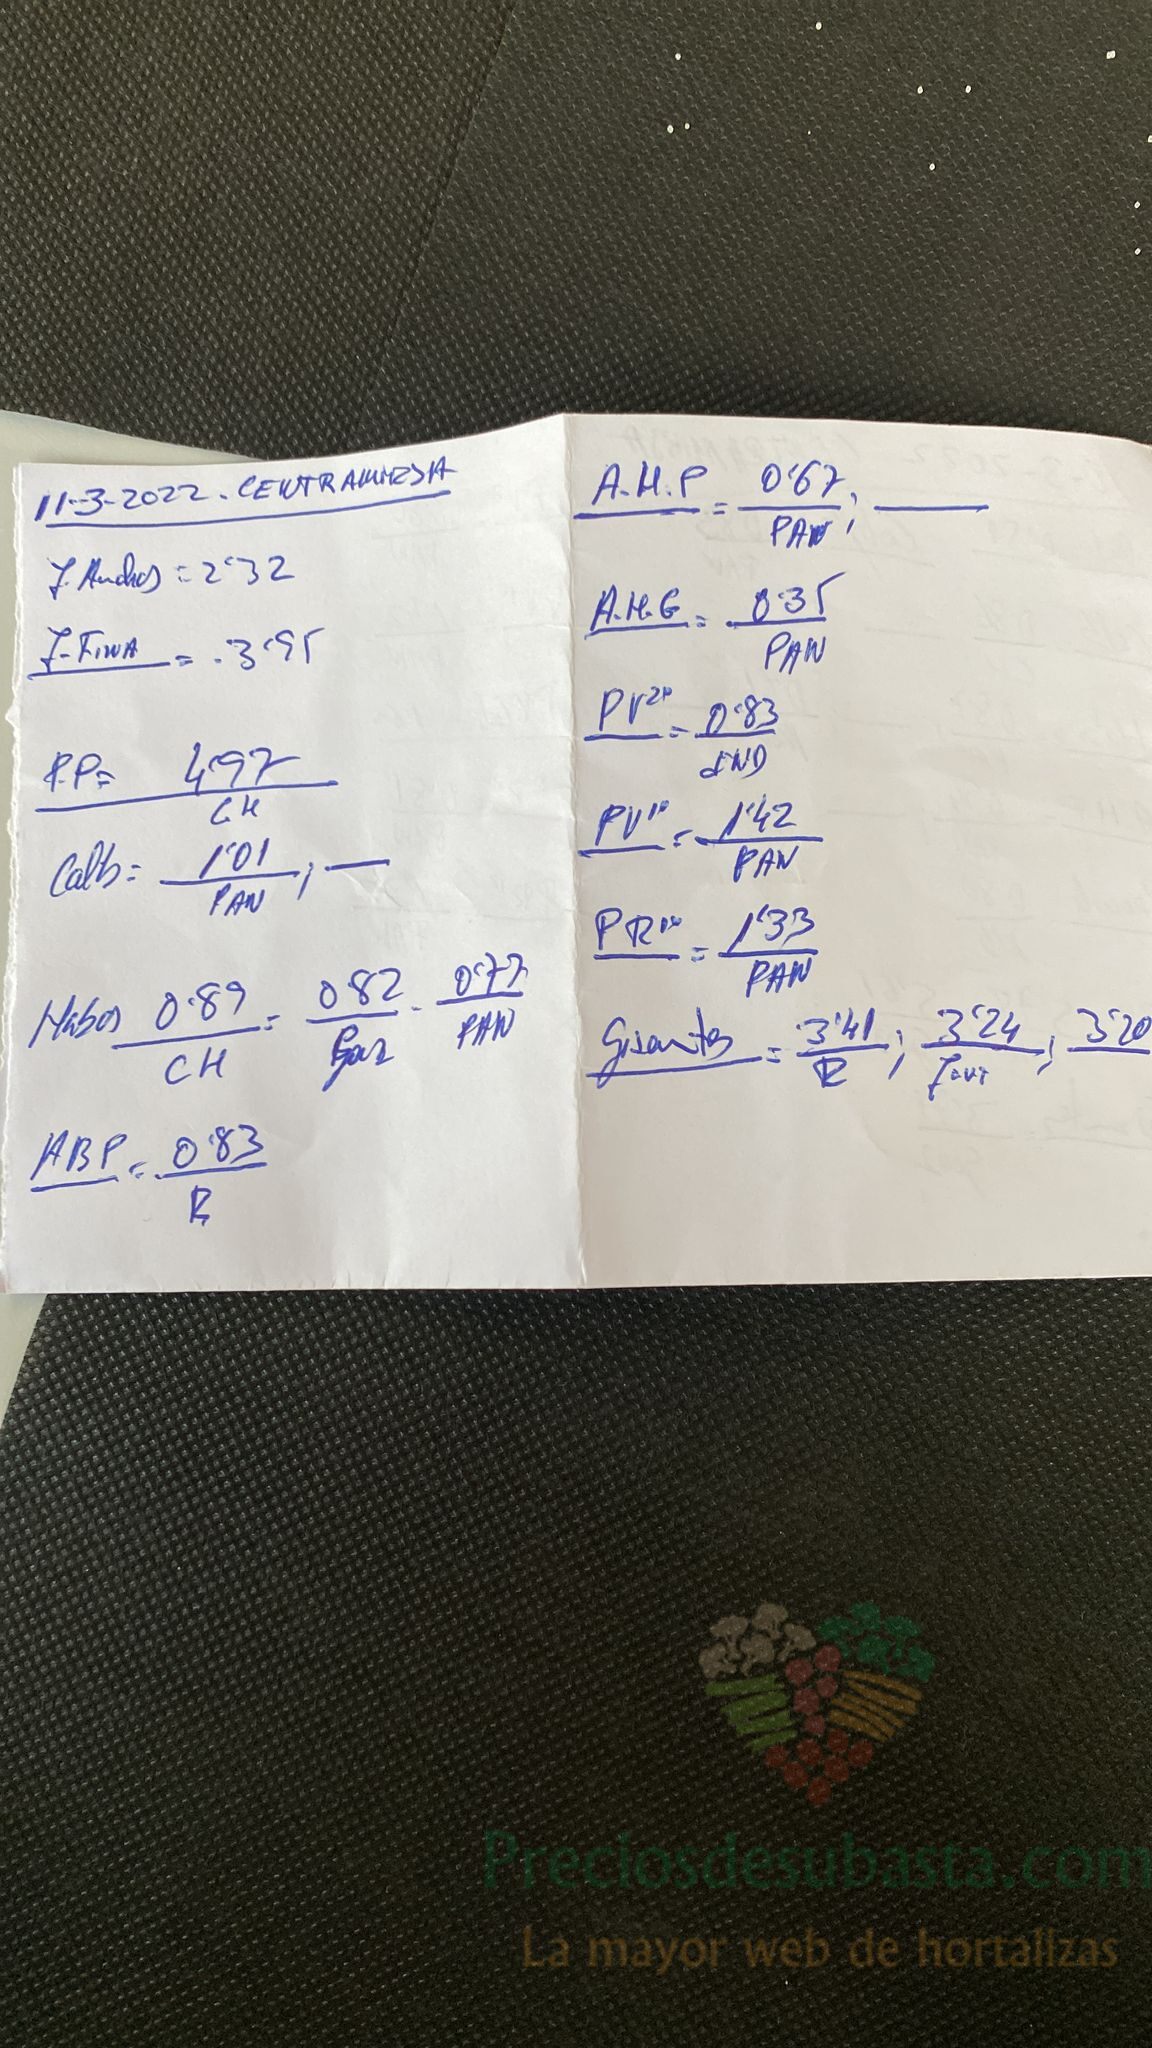 11-3-2022. CENTRALMESA
J. Anchas = 2'32
J-FINA = 3'95
P.P = 4'97
CH
Calb = 1'01 ; —
PAN
Habas 0'89 = 0'82 - 0'77
CH PAN
ABP = 0'83
R
A.M.P = 0'67 ; —
PAN
A.M.G = 0'35
PAN
PV2ª = 0'83
IND
PV1ª = 1'42
PAN
PR1ª = 1'33
PAN
Guisantes = 3'41 ; 3'24 ; 3'20
R
Preciosdesubasta.com
La mayor web de hortalizas